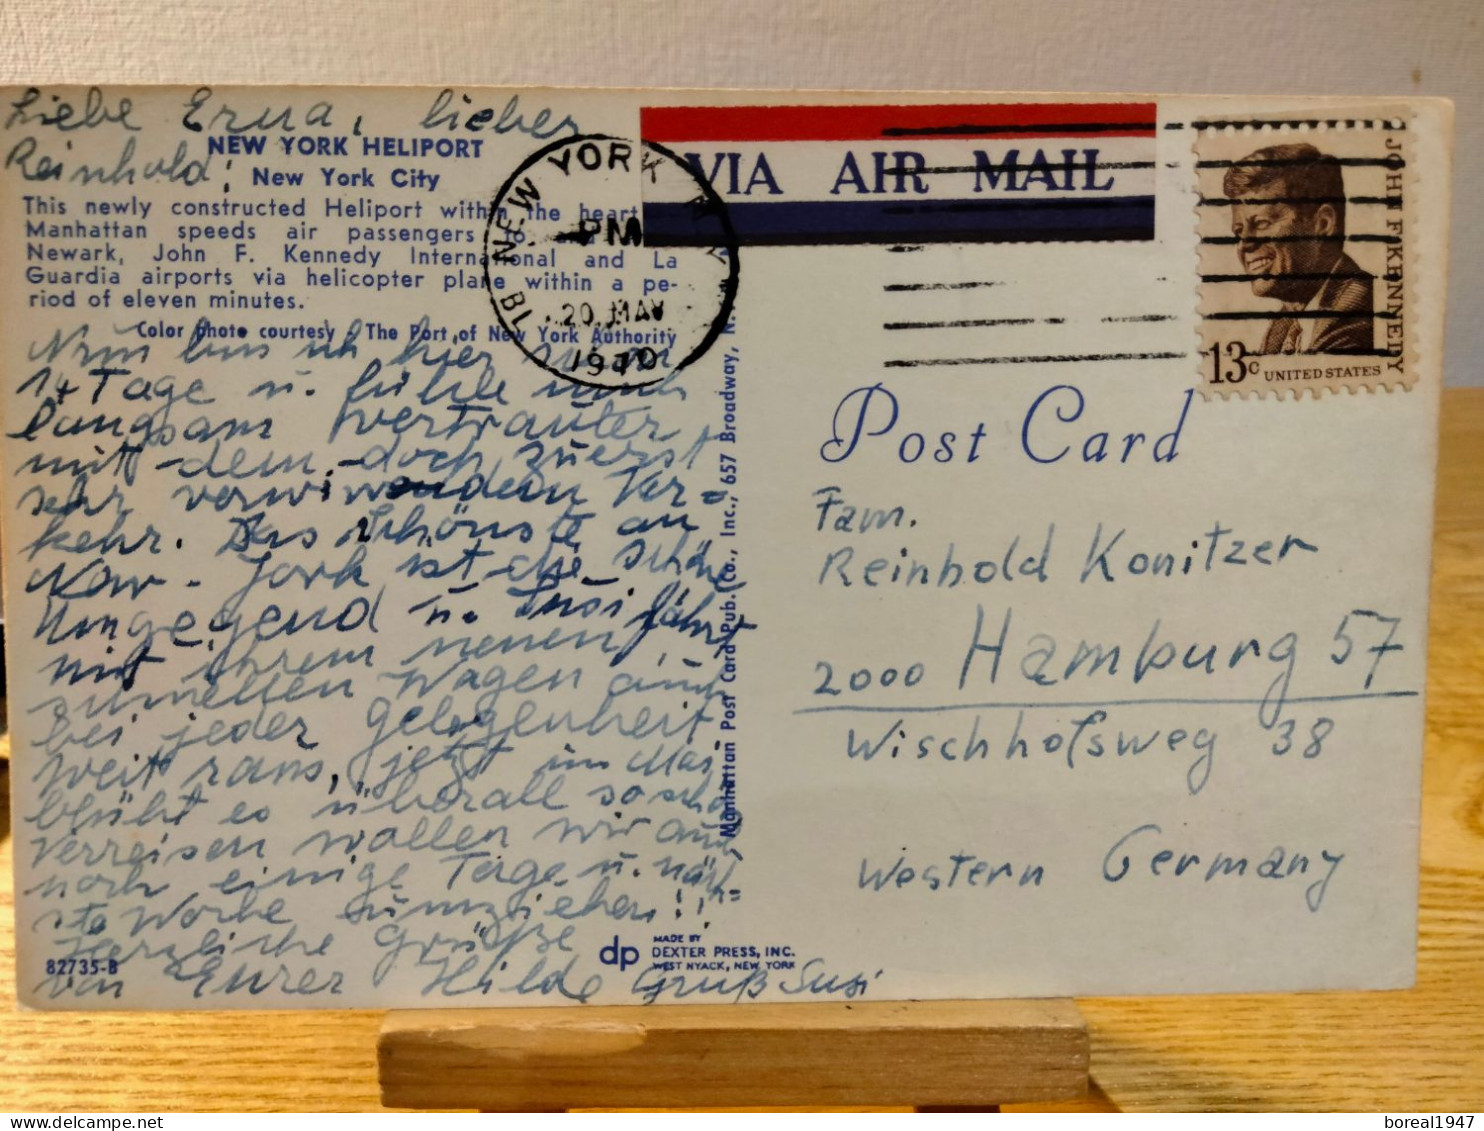 Liebe Erna, lieber
Reinhold!
NEW YORK HELIPORT
New York City
This newly constructed Heliport within the heart
Manhattan speeds air passengers to and
Newark, John F. Kennedy International and La
Guardia airports via helicopter plane within a pe-
riod of eleven minutes.
Color photo courtesy The Port of New York Authority
Nun bin ich hier schon
14 Tage u. fühle mich
langsam vertrauter
mit dem doch zuerst
sehr verwirrendem Ver=
kehr. Das schönste an
New-York ist die schöne
Umgegend u. Susi fährt
mit ihrem neuen,
schnellen Wagen auch
bei jeder Gelegenheit
weit raus, jetzt im Mai
blüht es überall so schön
Verreisen wollen wir auch
noch einige Tage u. näch=
ste Woche umziehen!!
Herzliche Grüße
von Eurer Hilde Gruß Susi
82735-B
dp
MADE BY
DEXTER PRESS, INC.
WEST NYACK, NEW YORK
Manhattan Post Card Pub. Co., Inc., 657 Broadway, N.
NEW YORK N.Y.
PM
20 MAY
1970
VIA AIR MAIL
JOHN F. KENNEDY
13c UNITED STATES
Post Card
Fam.
Reinhold Konitzer
2000 Hamburg 57
Wischhofsweg 38
Western Germany
boreal1947